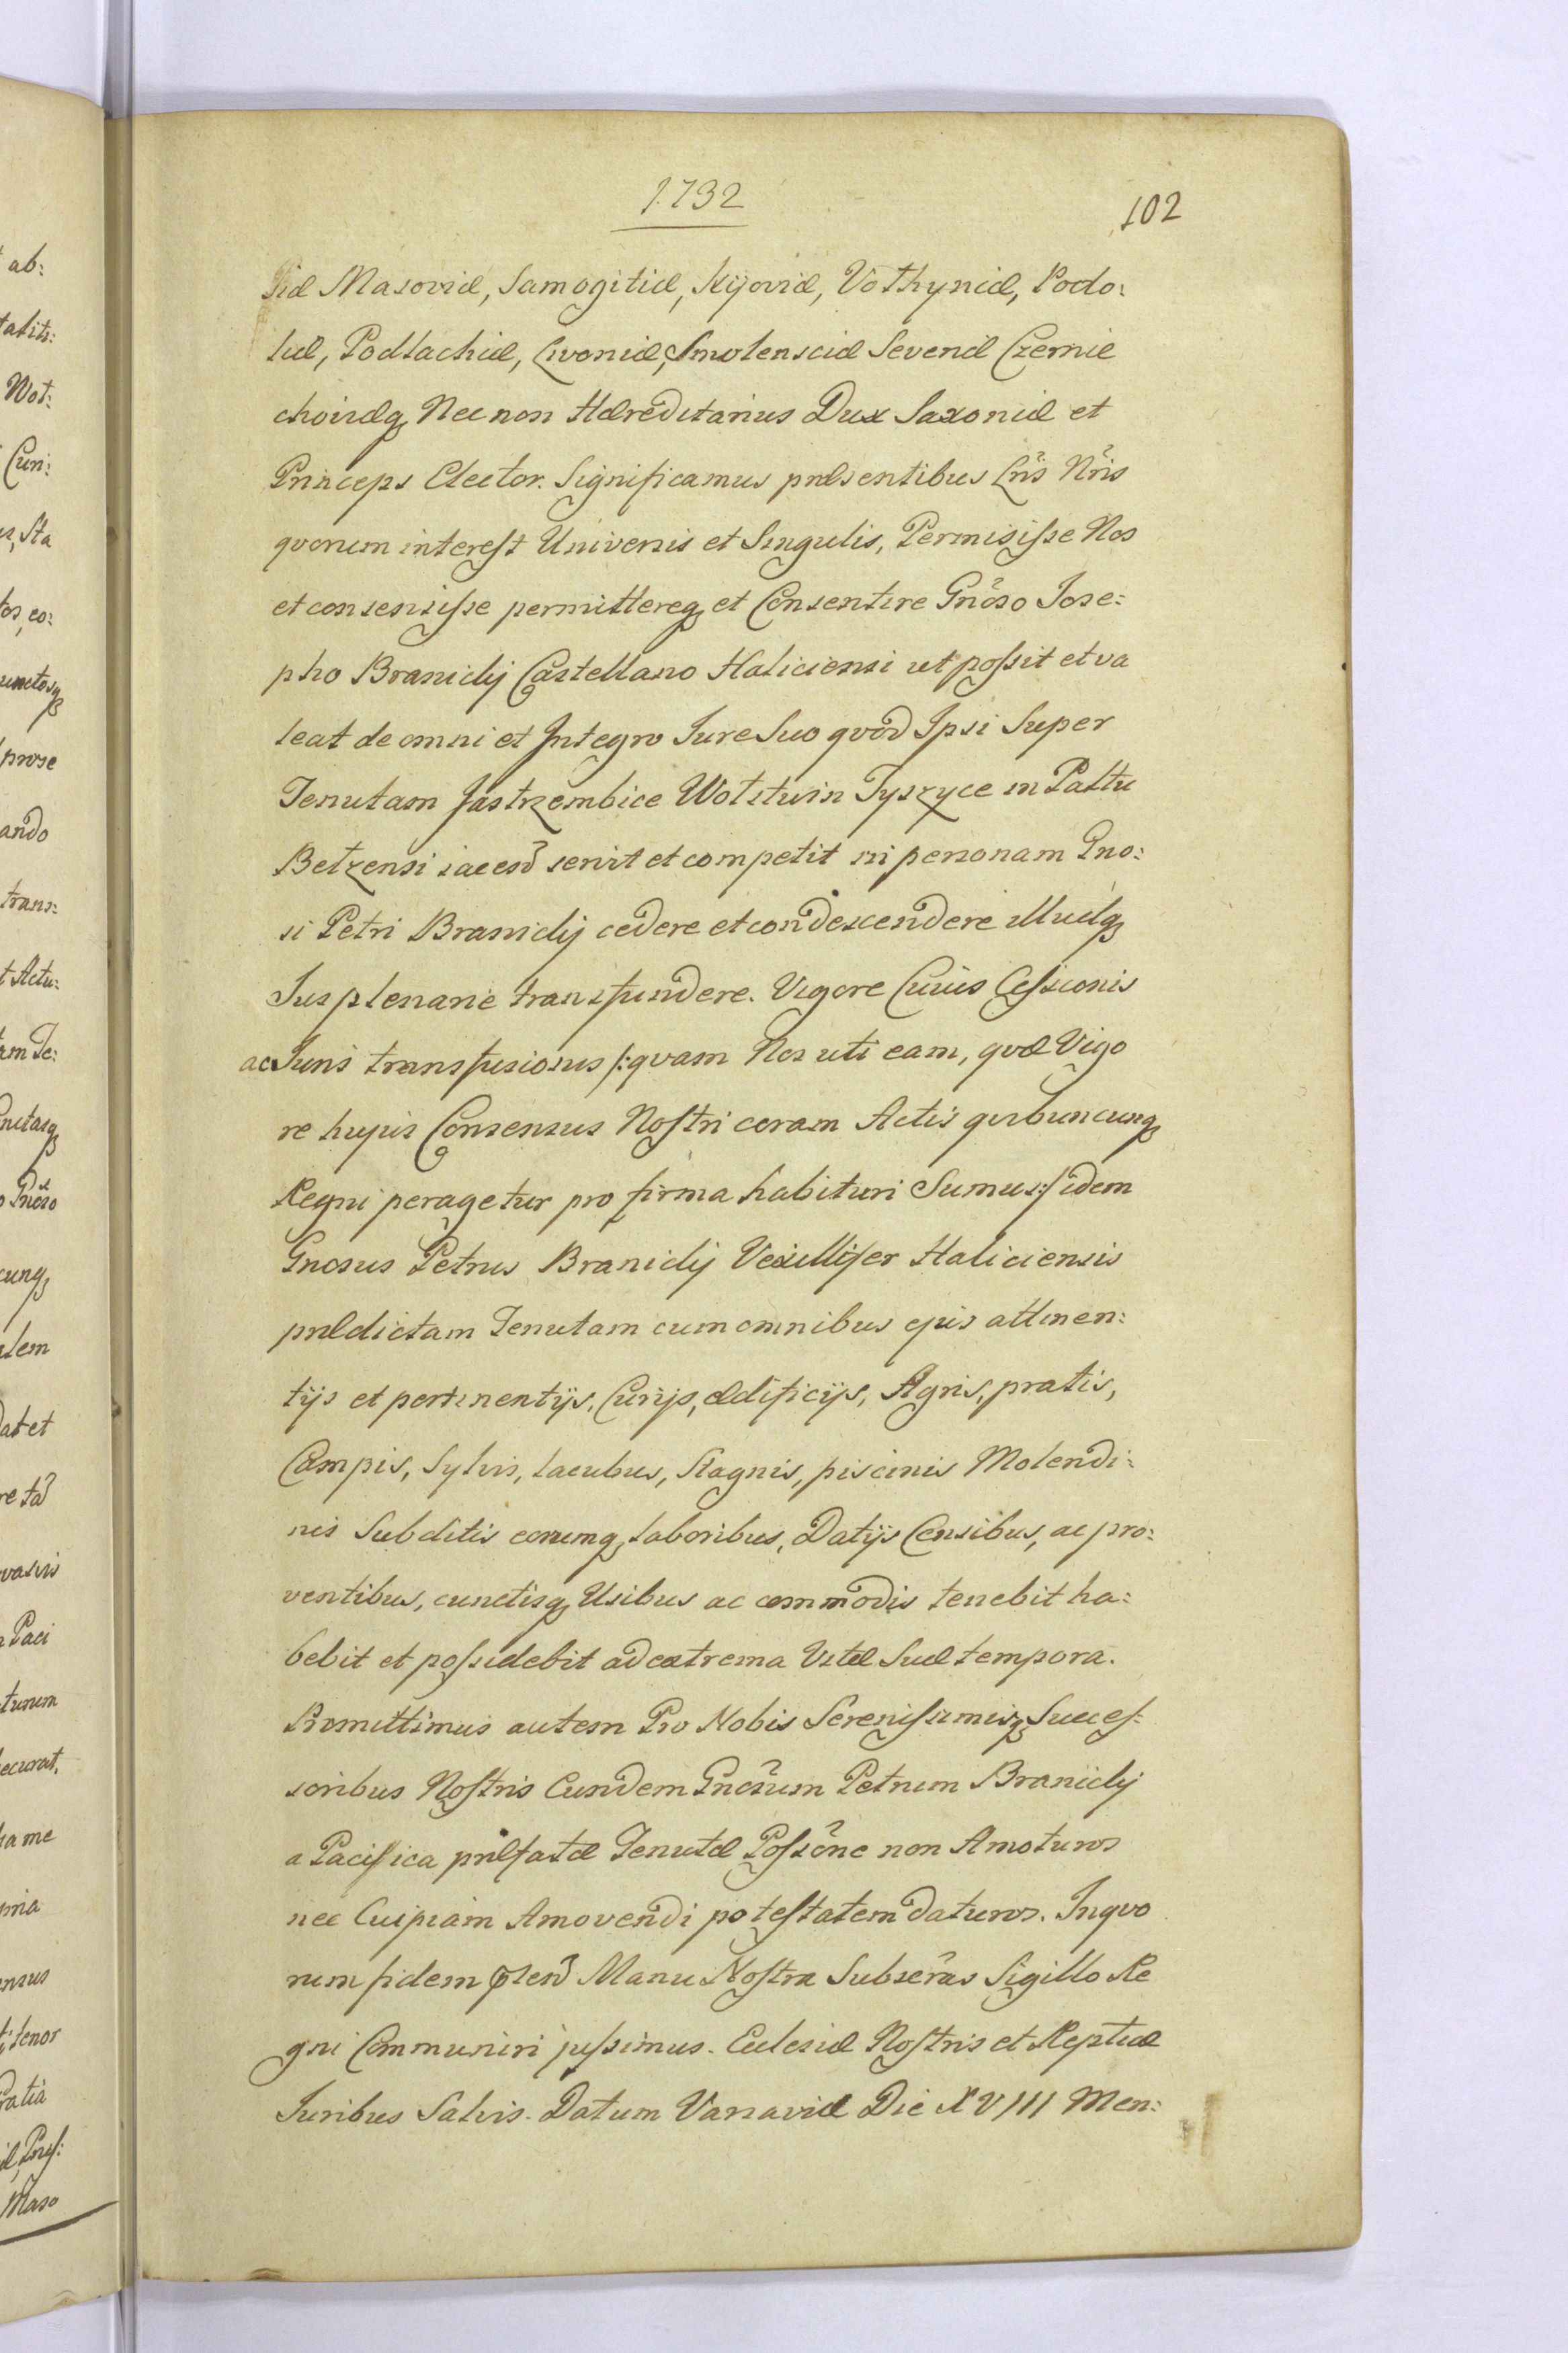 1732
102
siæ Masoviæ, Samogitiæ, Kijoviæ, Vołhyniæ, Podo:
liæ, Podlachiæ, Livoniæ, Smolensciæ Severiæ Czernie
choviæq Nec non Hæreditarius Dux Saxoniæ et
Princeps Elector. Significamus præsentibus Lr̃is Nr̃is
qvorum interest Universis et Singulis, Permisisse Nos
et consensisse permittereq et Consentire Gnõso Jose:
pho Branicki Castellano Haliciensi ut possit et va
leat de omni et Integro Jure Suo qvod Ipsi Super
Tenutam Jastrzembice Wolstwin Tyszyce in Pałtu
Bełzensi iacen̄ servit et competit in personam Gno:
si Petri Branicki cedere et condescendere illudq
Jus plenarie transfundere. Vigore Cuius Cessionis
ac Juris transfusionis /:qvam Nos uti eam, qvæ Vigo
re hujus Consensus Nostri coram Actis qvibuscunq
Regni peragetur pro firma habituri Sumus:/ idem
Gnosus Petrus Branicki Vexillifer Haliciensis
prædictam Tenutam cum omnibus ejus attinen:
tijs et pertinentijs, Curijs, ædificijs, Agris, pratis,
Campis, Sylvis, lacubus, Stagnis, piscinis Molendi:
nis Subditis eorumq laboribus, Datijs Censibus, ac pro:
ventibus, cunctisq Usibus ac commodis tenebit ha:
bebit et possidebit ad extrema Vitæ Suæ tempora.
Promittimus autem Pro Nobis Serenissimisq Succes:
soribus Nostris Eundem Gnõsum Petrum Branicki
a Pacifica præfatæ Tenutæ Possõne non Amoturos
nec Cuipiam Amovendi potestatem daturos. In qvo
rum fidem p̃sen̄ Manu Nostra Subscr̃as Sigillo Re
gni Communiri jussimus. Eclesiæ Nostris et Reptcæ
Juribus Salvis. Datum Varsaviæ Die XVIII Men: